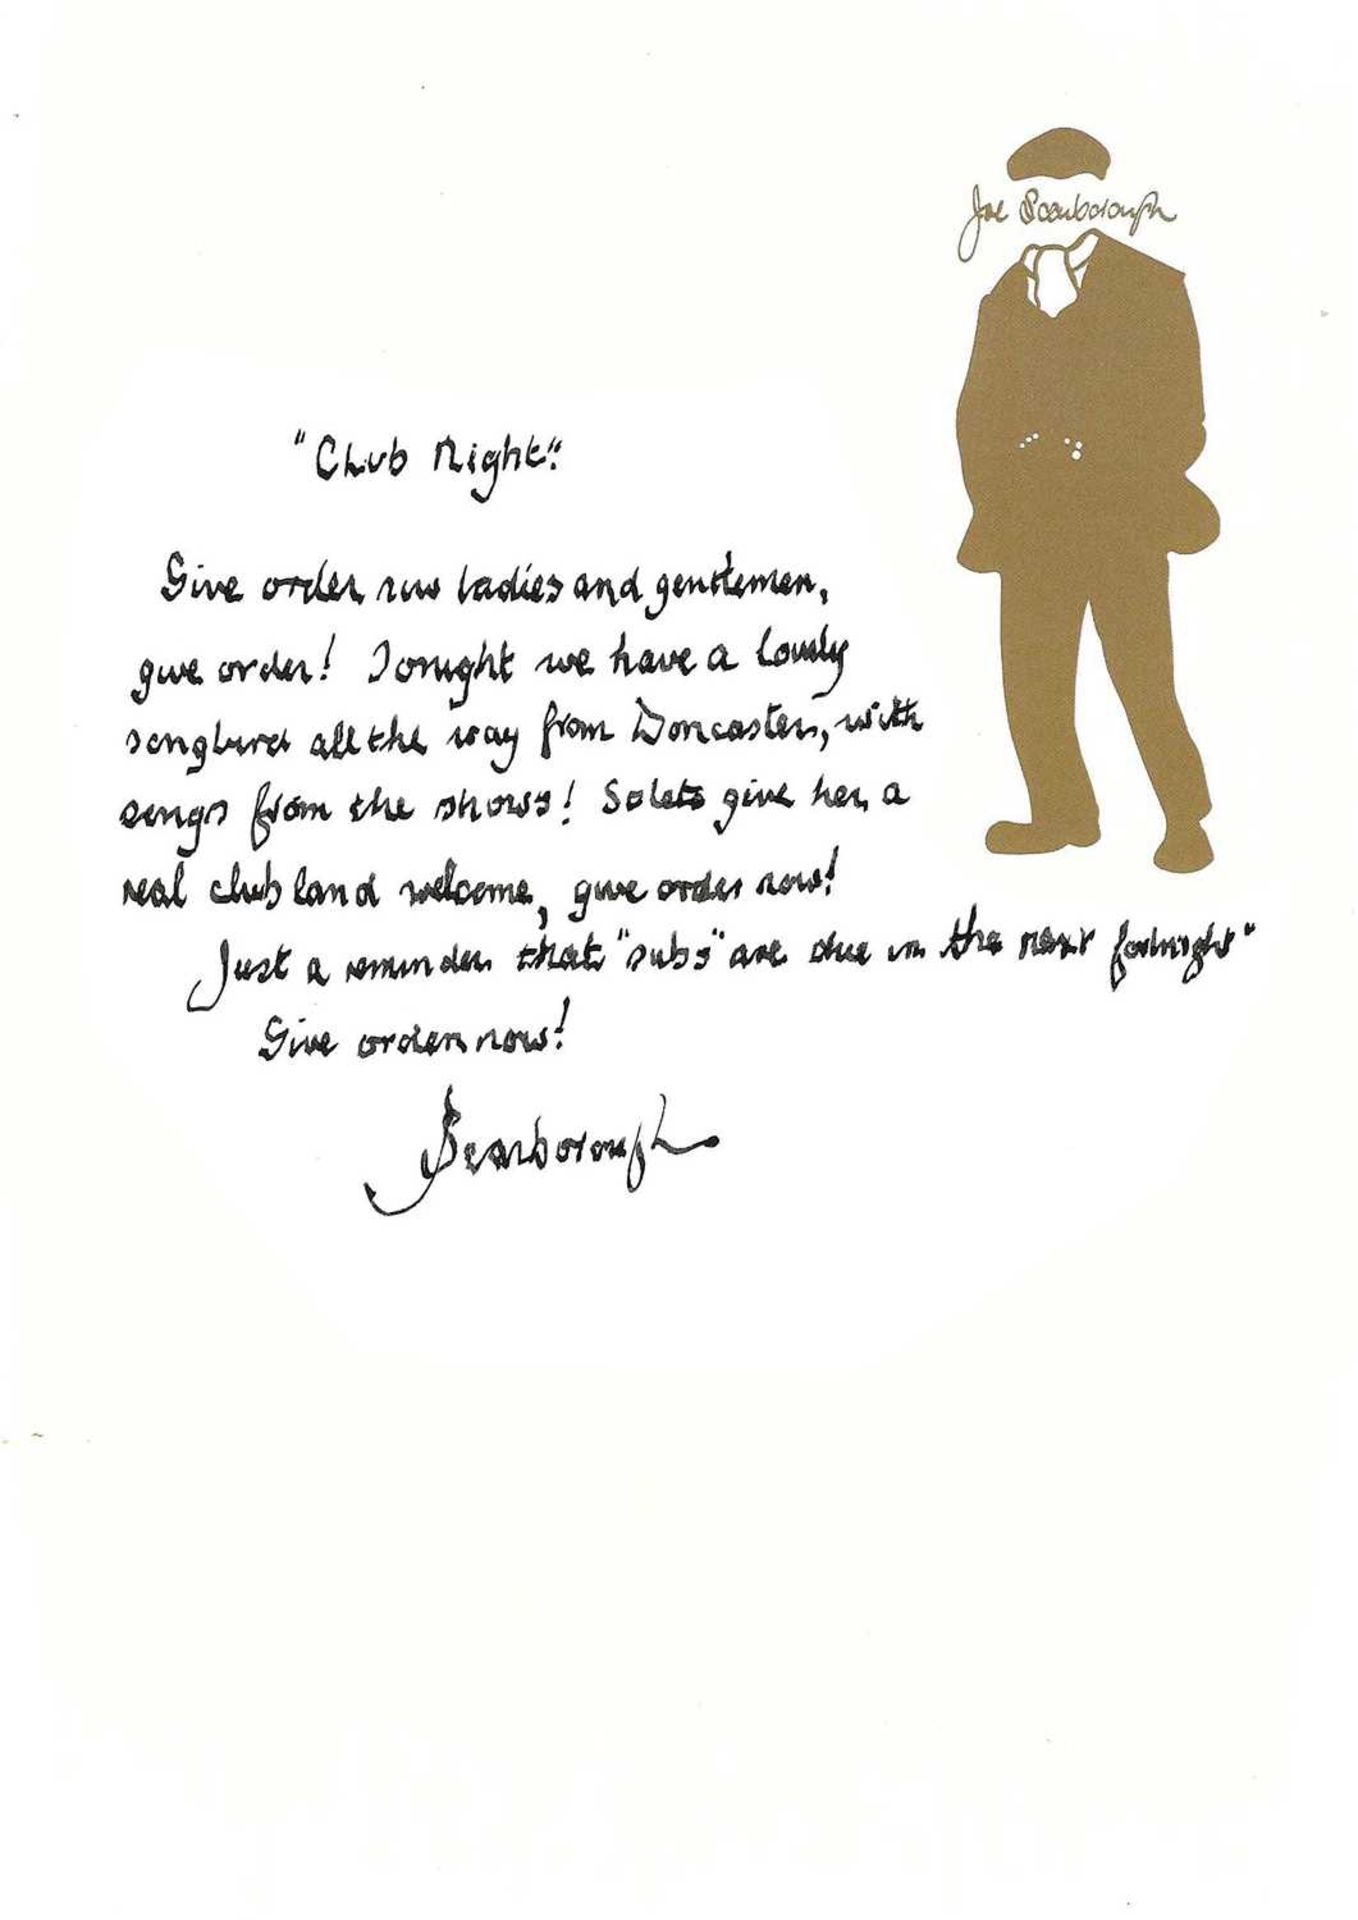 Joe Scarborough
"Club Night".
Give order now ladies and gentlemen,
give order! Tonight we have a lovely
songbird all the way from Doncaster, with
songs from the shows! So lets give her a
real club land welcome, give order now!
Just a reminder that "subs" are due in the next fortnight"
Give order now!
JScarborough